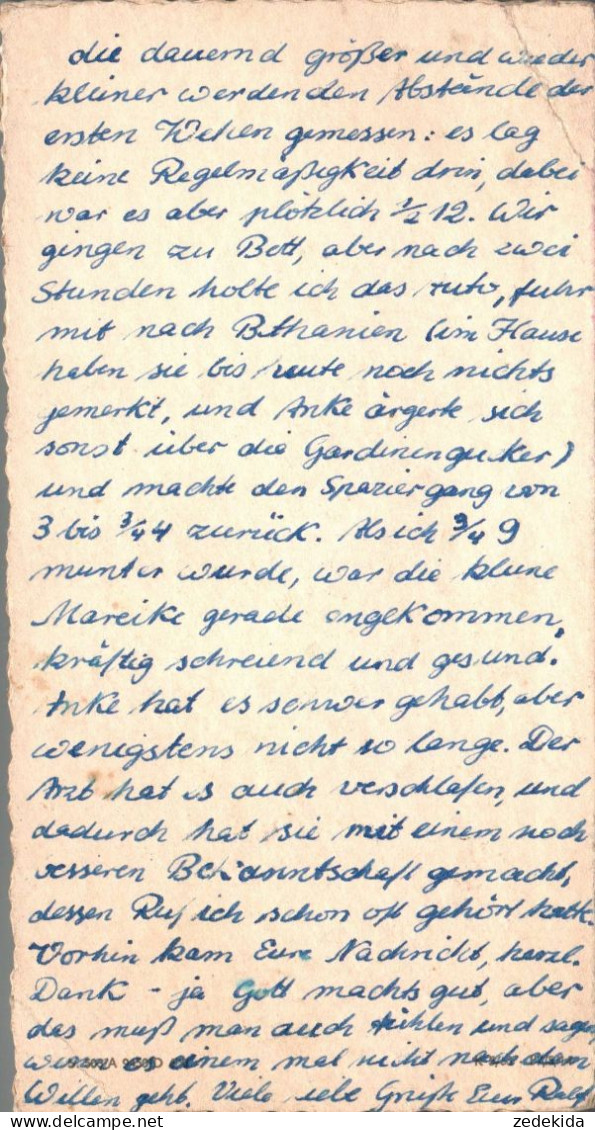 die dauernd größer und wieder
kleiner werdenden Abstände der
ersten Wehen gemessen: es lag
keine Regelmäßigkeit drin, dabei
war es aber plötzlich ½ 12. Wir
gingen zu Bett, aber nach zwei
Stunden holte ich das Auto, fuhr
mit nach Bethanien (im Hause
haben sie bis heute noch nichts
gemerkt, und Anke ärgerte sich
sonst über die Gardinengucker)
und machte den Spaziergang von
3 bis ¾ 4 zurück. Als ich ¾ 9
munter wurde, war die kleine
Mareike gerade angekommen,
kräftig schreiend und gesund.
Anke hat es schwer gehabt, aber
wenigstens nicht so lange. Der
Arzt hat es auch verschlafen, und
dadurch hat sie mit einem noch
besseren Bekanntschaft gemacht,
dessen Ruf ich schon oft gehört hatte.
Vorhin kam Eure Nachricht, herzl.
Dank - ja Gott machts gut, aber
das muß man auch fühlen und sagen,
wenn es einem mal nicht nach dem
Willen geht. Viele liebe Grüße Euer Ralf
www.delcampe.net
zedekida